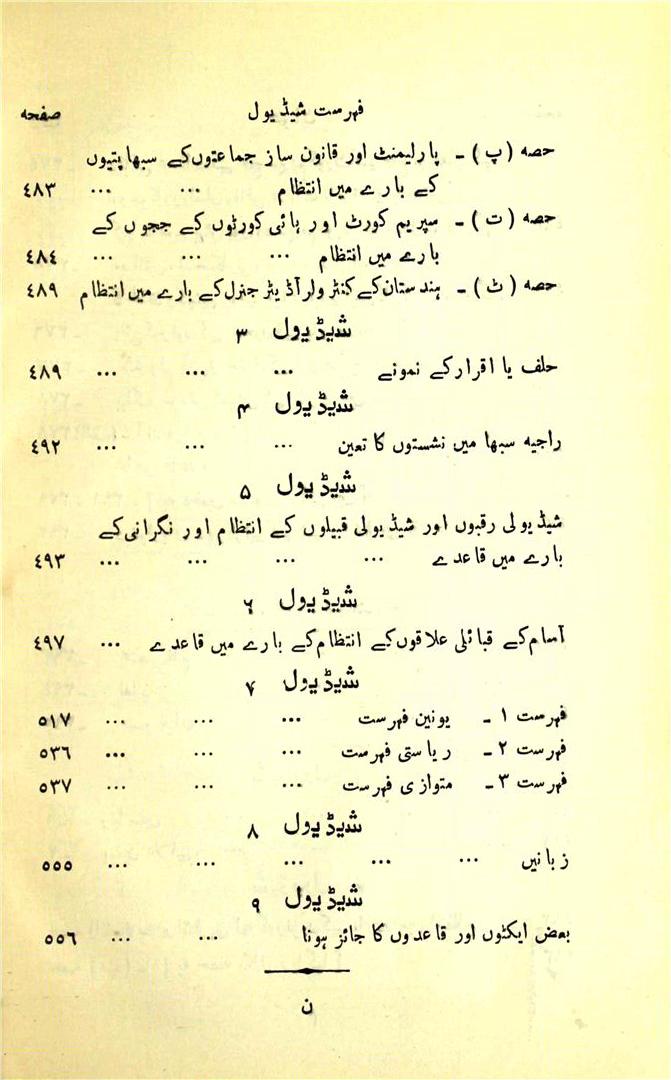 فہرست شیڈیول صفحہ
حصہ (پ) ۔ پارلیمنٹ اور قانون ساز جماعتوں کے سبھا پتیوں
کے بارے میں انتظام ... ... ٤٨٣
حصہ (ت) ۔ سپریم کورٹ اور ہائی کورٹوں کے ججوں کے
بارے میں انتظام ... ... ... ٤٨٤
حصہ (ٹ) ۔ ہندستان کے کنٹرولر آڈیٹر جنرل کے بارے میں انتظام ٤٨٩
شیڈیول ٣
حلف یا اقرار کے نمونے ... ... ... ٤٨٩
شیڈیول ۴
راجیہ سبھا میں نشستوں کا تعین ... ... ... ٤٩٢
شیڈیول ۵
شیڈیولی رقبوں اور شیڈیولی قبیلوں کے انتظام اور نگرانی کے
بارے میں قاعدے ... ... ... ... ٤٩٣
شیڈیول ٦
آسام کے قبائلی علاقوں کے انتظام کے بارے میں قاعدے ... ٤٩٧
شیڈیول ٧
فہرست ١ ۔ یونین فہرست ... ... ... ٥١٧
فہرست ٢ ۔ ریاستی فہرست ... ... ... ٥٣٦
فہرست ٣ ۔ متوازی فہرست ... ... ... ٥٣٧
شیڈیول ٨
زبانیں ... ... ... ... ... ٥٥٥
شیڈیول ٩
بعض ایکٹوں اور قاعدوں کا جائز ہونا ... ... ٥٥٦
ن